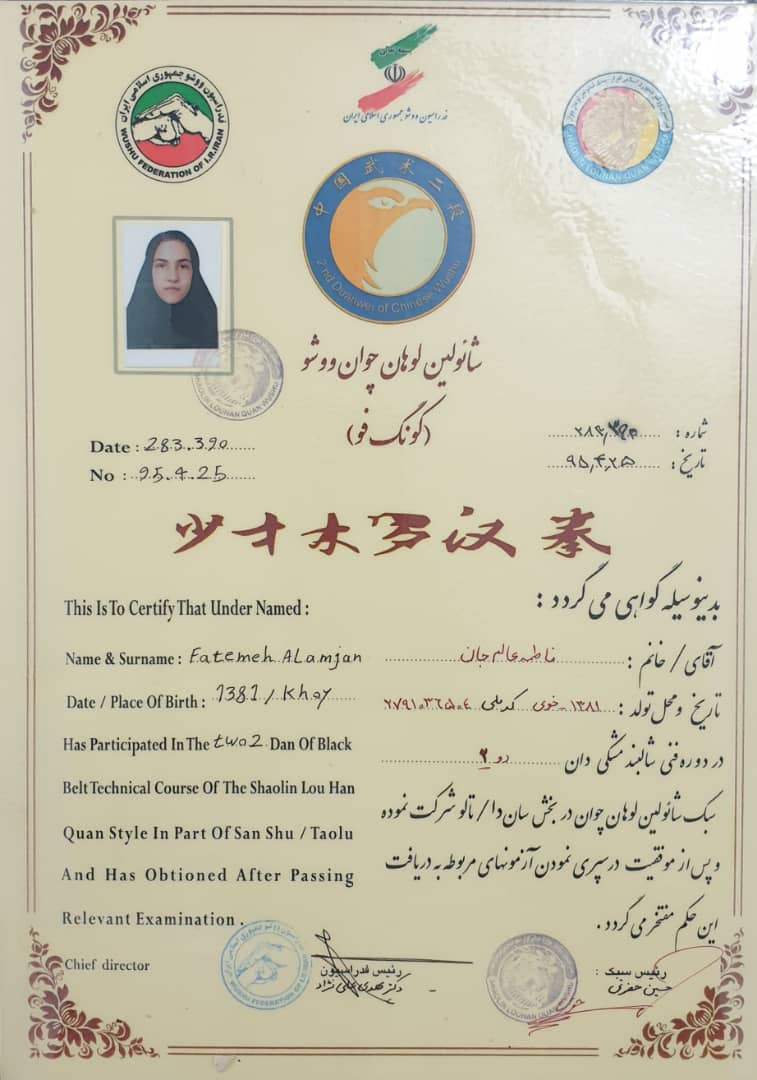 بسمه تعالی
فدراسیون ووشو جمهوری اسلامی ایران
فدراسیون ووشو جمهوری اسلامی ایران
WUSHU FEDERATION OF I.R.IRAN
SHAOLIN LOUHAN QUAN WUSHU
中国武术二段
2nd Duanwei of Chinese Wushu
شائولین لوهان چوان ووشو
(گونگ فو)
SHAOLIN LOUHAN QUAN WUSHU
Date : 283.390
No : 95.4.25
شماره :
تاریخ : ۹۵٫۴٫۲۵
少才木罗汉拳
This Is To Certify That Under Named :
بدینوسیله گواهی می گردد :
Name & Surname : Fatemeh ALamjan
آقای / خانم : فاطمه عالم جان
Date / Place Of Birth : 1381 / Khoy
تاریخ و محل تولد : ۱۳۸۱ - خوی کد ملی ۲۷۹۱۰۳۶۵۰۴
Has Participated In The two2 Dan Of Black
در دوره فنی شالبند مشکی دان دو ۲
Belt Technical Course Of The Shaolin Lou Han
سبک شائولین لوهان چوان در بخش سان دا / تالو شرکت نموده
Quan Style In Part Of San Shu / Taolu
و پس از موفقیت در سپری نمودن آزمونهای مربوطه به دریافت
And Has Obtioned After Passing
این حکم مفتخر می گردد .
Relevant Examination .
Chief director
WUSHU FEDERATION
رئیس فدراسیون
دکتر مهدی علی نژاد
SHAOLIN LOUHAN QUAN WUSHU
رئیس سبک :